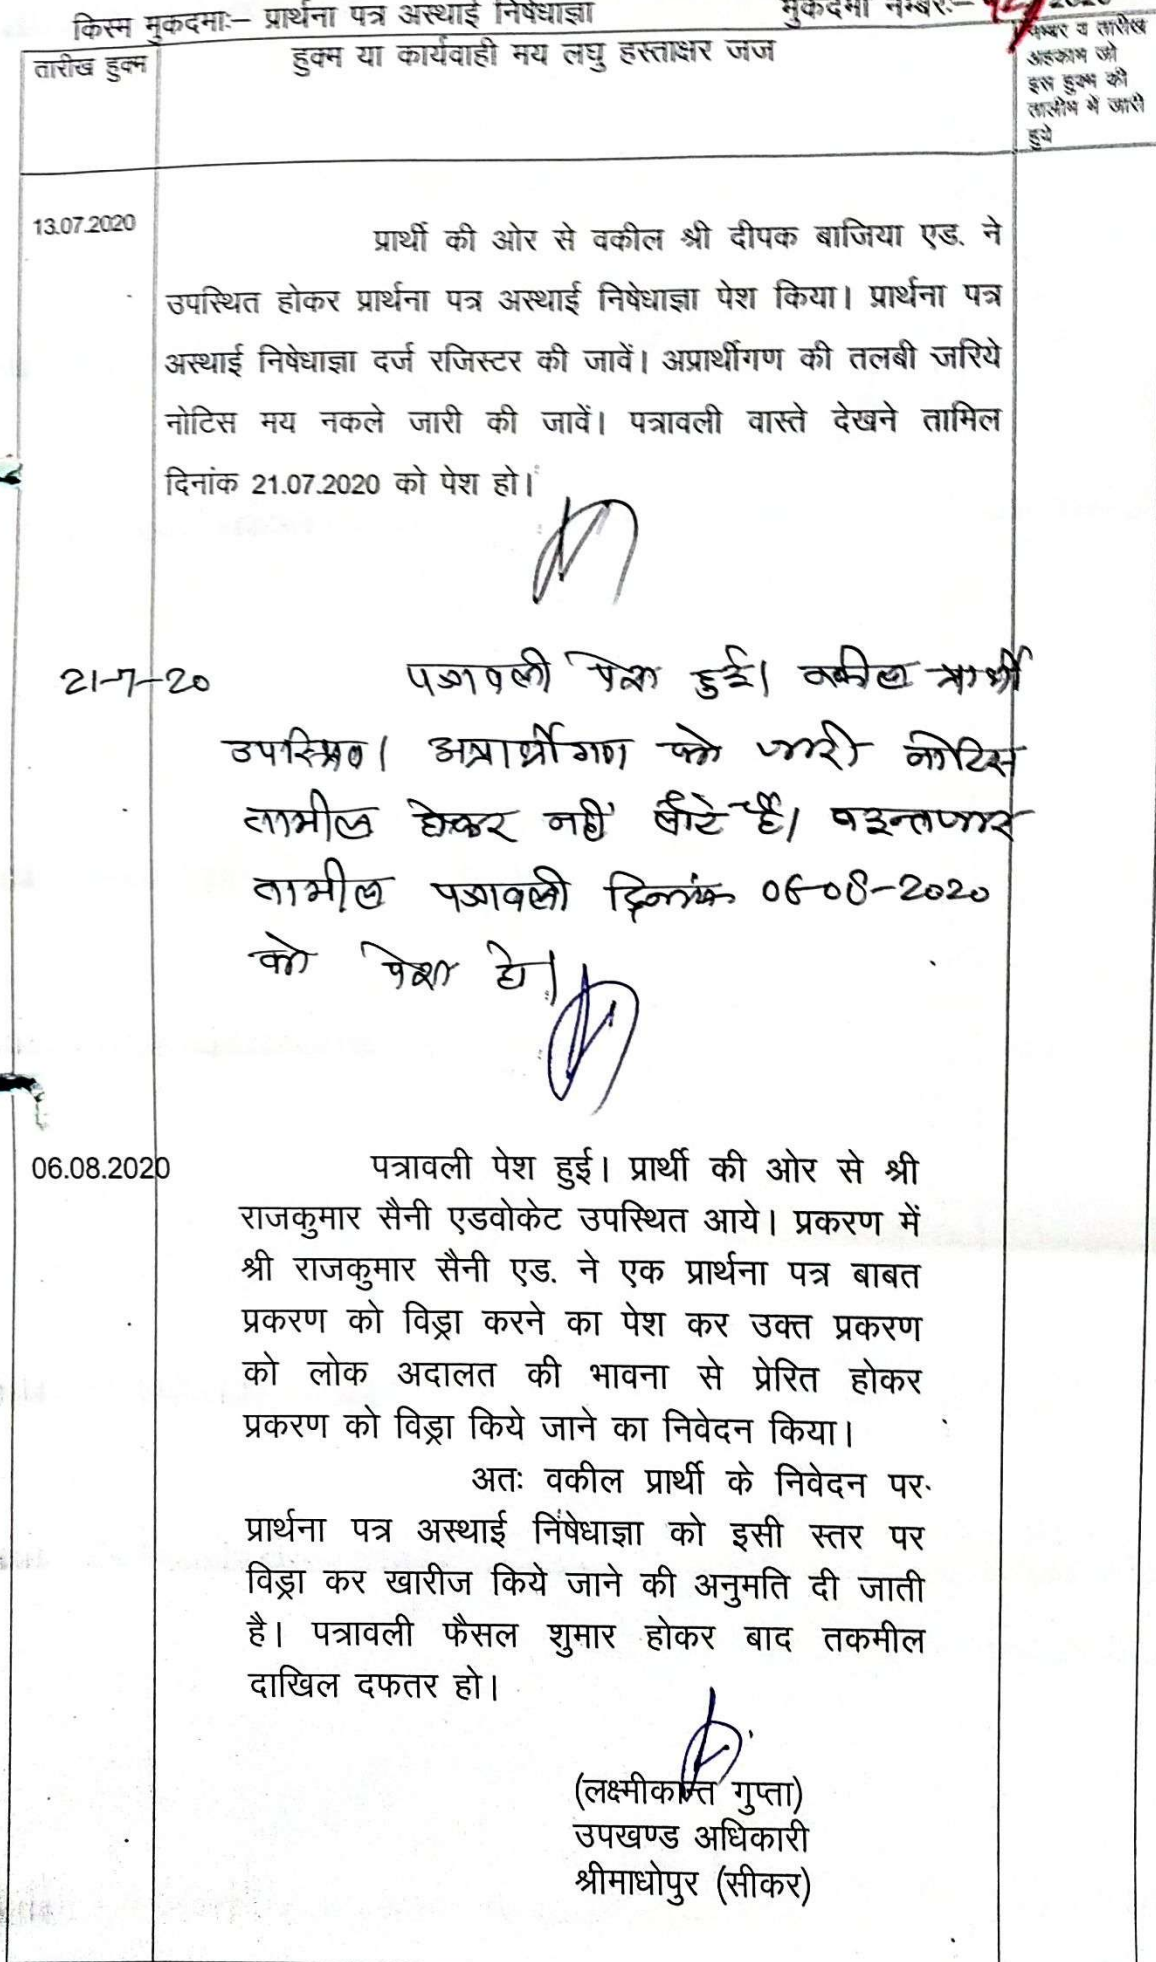 किस्म मुकदमाः– प्रार्थना पत्र अस्थाई निषेधाज्ञा मुकदमा नम्बरः–
तारीख हुक्म
हुक्म या कार्यवाही मय लघु हस्ताक्षर जज
नम्बर व तारीख
अहकाम जो
इस हुक्म की
तालीम में जारी
हुये
13.07.2020
प्रार्थी की ओर से वकील श्री दीपक बाजिया एड. ने
उपस्थित होकर प्रार्थना पत्र अस्थाई निषेधाज्ञा पेश किया। प्रार्थना पत्र
अस्थाई निषेधाज्ञा दर्ज रजिस्टर की जावें। अप्रार्थीगण की तलबी जरिये
नोटिस मय नकले जारी की जावें। पत्रावली वास्ते देखने तामिल
दिनांक 21.07.2020 को पेश हो।
21-7-20
पत्रावली पेश हुई। वकील प्रार्थी
उपस्थित। अप्रार्थीगण को जारी नोटिस
तामील होकर नहीं लौटे है। वइन्तजार
तामील पत्रावली दिनांक 06-08-2020
को पेश हो।
06.08.2020
पत्रावली पेश हुई। प्रार्थी की ओर से श्री
राजकुमार सैनी एडवोकेट उपस्थित आये। प्रकरण में
श्री राजकुमार सैनी एड. ने एक प्रार्थना पत्र बाबत
प्रकरण को विड्रा करने का पेश कर उक्त प्रकरण
को लोक अदालत की भावना से प्रेरित होकर
प्रकरण को विड्रा किये जाने का निवेदन किया।
अतः वकील प्रार्थी के निवेदन पर
प्रार्थना पत्र अस्थाई निषेधाज्ञा को इसी स्तर पर
विड्रा कर खारीज किये जाने की अनुमति दी जाती
है। पत्रावली फैसल शुमार होकर बाद तकमील
दाखिल दफतर हो।
(लक्ष्मीकान्त गुप्ता)
उपखण्ड अधिकारी
श्रीमाधोपुर (सीकर)